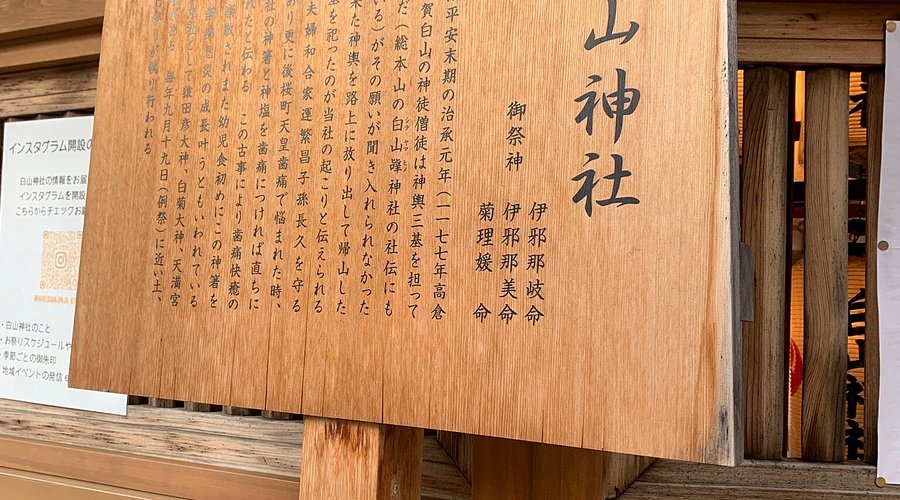 山神社
御祭神
伊邪那岐命
伊邪那美命
菊理媛 命
平安末期の治承元年(一一七七年高倉
賀白山の神徒僧徒は神輿三基を担って
だ(総本山の白山嶂神社の社伝にも
いる)がその願いが聞き入れられなかった
来た神輿を路上に放り出して帰山した
基を祀ったのが当社の起こりと伝えられる
夫婦和合家運繁昌子孫長久を守る
あり更に後桜町天皇歯痛で悩まれた時、
社の神箸と神塩を歯痛につければ直ちに
れたと伝わる この古事により歯痛快癒の
崇敬されまた幼児食初めにこの神箸を
の成長叶うともいわれている
て鎌田彦大神、白菊大神、天満宮
毎年九月十九日(例祭)に近い土、
り行われる
インスタグラム開設の
白山神社の情報をお届
インスタグラムを開設
こちらからチェックお願
・白山神社のこと
・お祭りスケジュールや
・季節ごとの御朱印
・地域イベントの発信